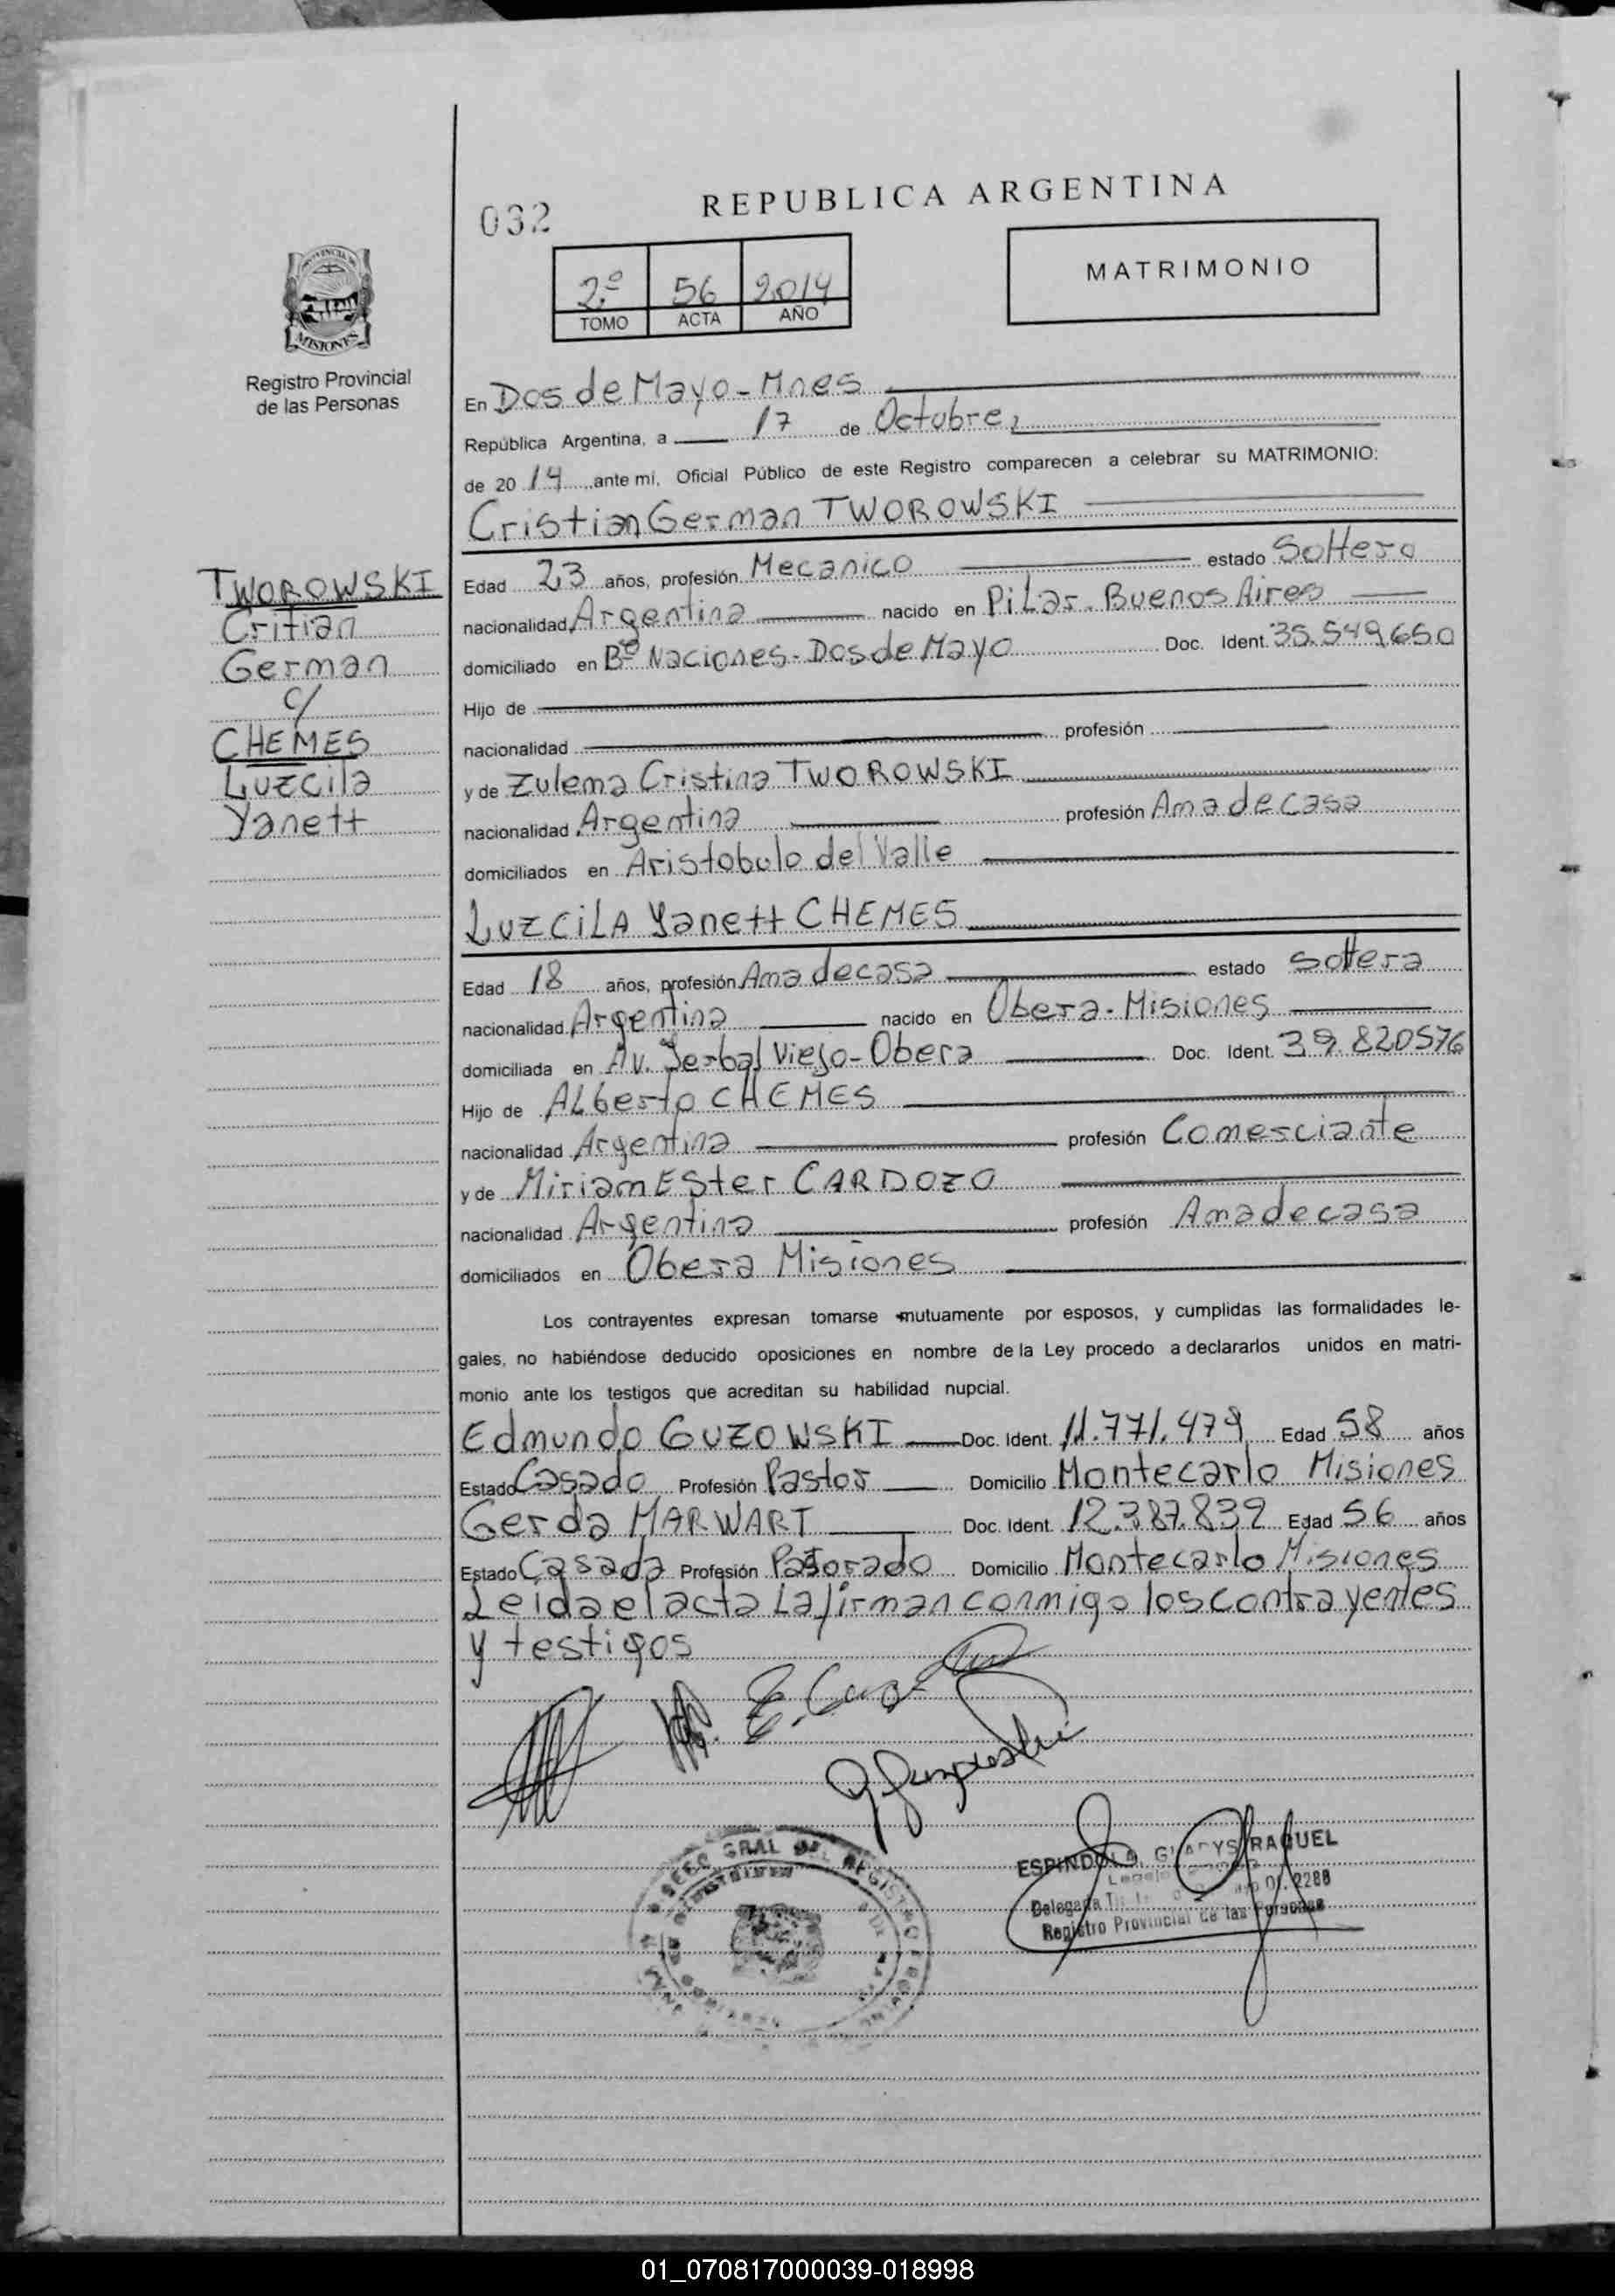 032
REPUBLICA ARGENTINA
2º 56 2014
TOMO ACTA AÑO
MATRIMONIO
PROVINCIA DE
MISIONES
Registro Provincial
de las Personas
En Dos de Mayo - Mnes
República Argentina, a 17 de Octubre,
de 20 14 ante mi, Oficial Público de este Registro comparecen a celebrar su MATRIMONIO:
Cristian German TWOROWSKI
Edad 23 años, profesión Mecanico estado Soltero
nacionalidad Argentina nacido en Pilar. Buenos Aires
domiciliado en Bº Naciones - Dos de Mayo Doc. Ident. 35.549.650
Hijo de
nacionalidad profesión
y de Zulema Cristina TWOROWSKI
nacionalidad Argentina profesión Ama de casa
domiciliados en Aristobulo del Valle
TWOROWSKI
Critian
German
c/
CHEMES
Luzcila
Yanett
LUZCILA Yanett CHEMES
Edad 18 años, profesión Ama de casa estado soltera
nacionalidad Argentina nacido en Obera - Misiones
domiciliada en Av. Yerbal Viejo - Obera Doc. Ident. 39.820576
Hijo de ALberto CHEMES
nacionalidad Argentina profesión Comerciante
y de Miriam Ester CARDOZO
nacionalidad Argentina profesión Ama de casa
domiciliados en Obera Misiones
Los contrayentes expresan tomarse mutuamente por esposos, y cumplidas las formalidades le-
gales, no habiéndose deducido oposiciones en nombre de la Ley procedo a declararlos unidos en matri-
monio ante los testigos que acreditan su habilidad nupcial.
Edmundo GUZOWSKI Doc. Ident. 11.771.479 Edad 58 años
Estado Casado Profesión Pastor Domicilio Montecarlo Misiones
Gerda MARWART Doc. Ident. 12.387.839 Edad 56 años
Estado Casada Profesión Domicilio Montecarlo Misiones
Leida el acta La firman conmigo los contrayentes
y testigos
ESPINDOLA, GLADYS RAQUEL
Registro Provincial de las Personas
01_070817000039-018998